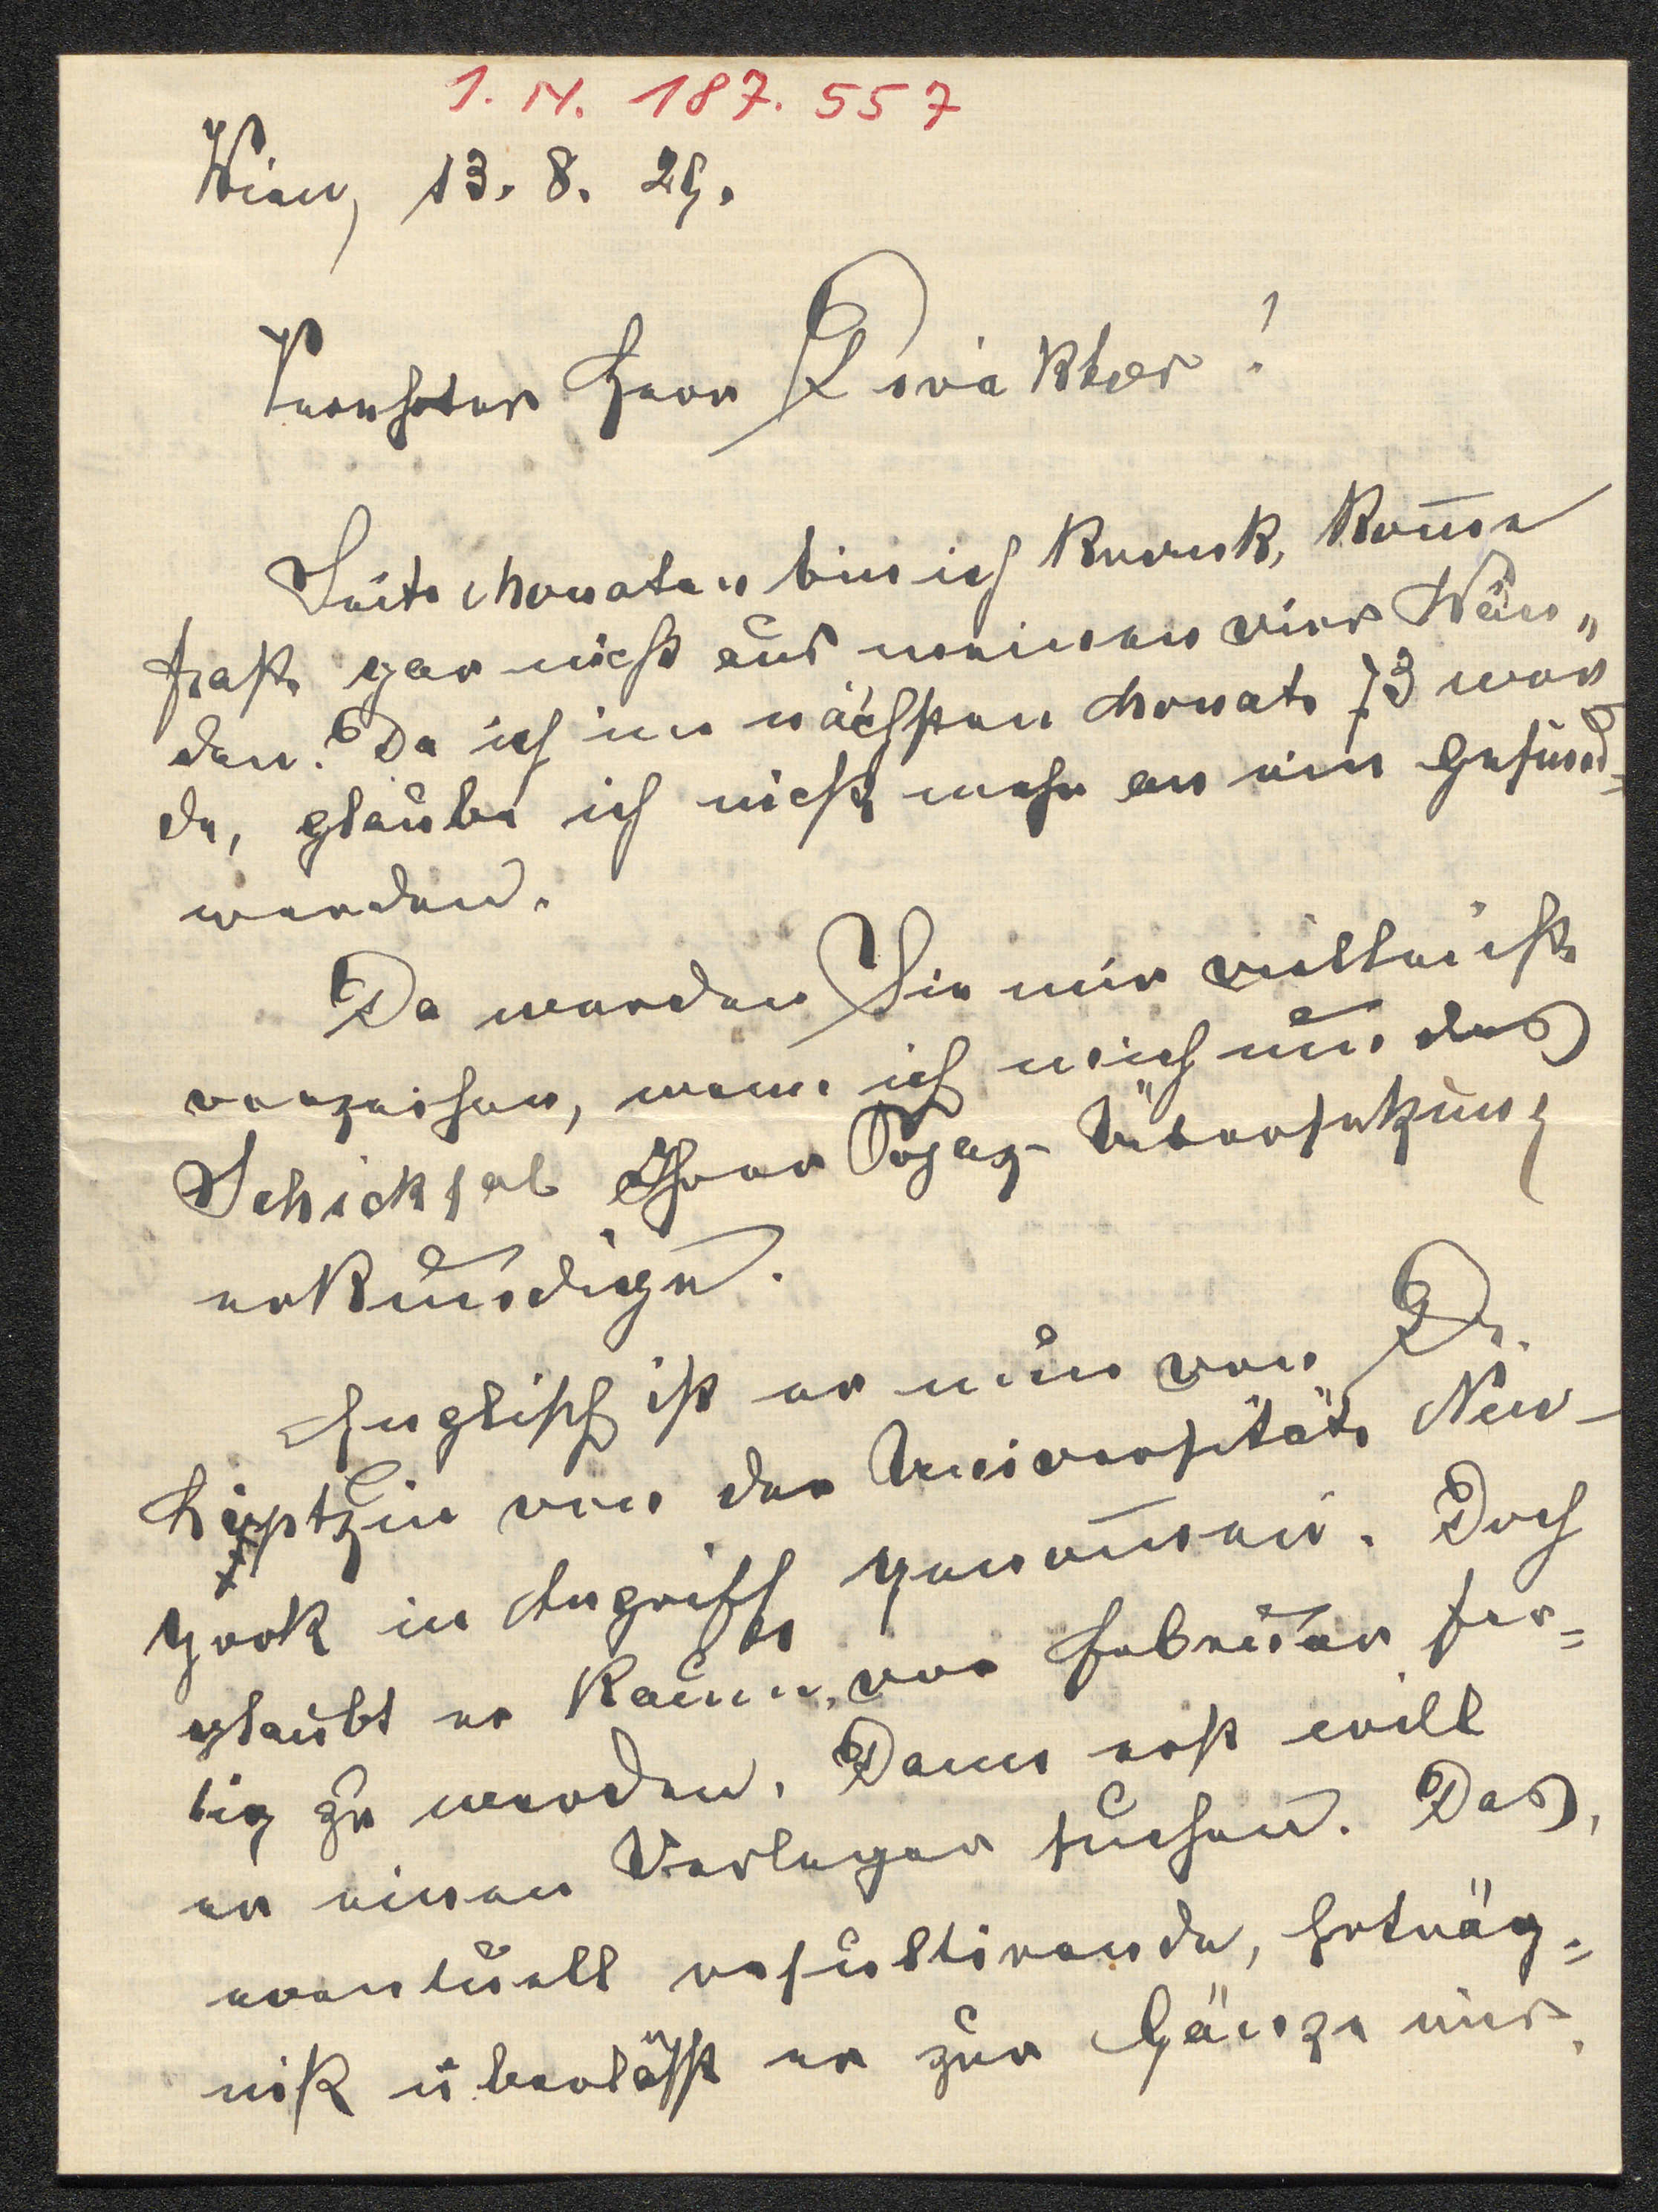 I. N. 187.557
Wien, 13. 8. 29.
Verehrter Herr Direktor!
Seit Monaten bin ich krank, kom̄e
fast gar nicht aus meinen vier Wän„
den. Da ich im nächsten Monat 73 wer
de, glaube ich nicht mehr an ein Gesund=
werden.
Da werden Sie mir vielleicht
verzeihen, wenn ich mich um das
Schicksal Ihrer Übersetzung
erkundige.
Englisch ist er nun von Dr.
Liptzin von der Universität New-
York in Angriff genom̄en. Doch
glaubt er kaum, vor Februar fer=
tig zu werden. Dann erst will
er einen Verleger suchen. Das,
eventuell resultirende, Erträg=
nis überläßt er zur Gänze mir.